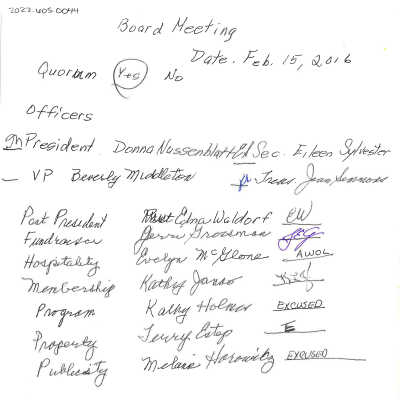 2022.005.0044
Board Meeting
Date. Feb. 15, 2016
Quorum Yes No
Officers
President Donna Nussenblatt Sec. Eileen Sylvester
VP Beverly Middleton Treas Jean Simmons
Past President Edna Waldorf EW
Fundraiser Jerri Grossman JG
Hospitality Evelyn McGlone AWOL
Membership Kathy Janso
Program Kathy Holmes EXCUSED
Property Terry Estep E
Publicity Melanie Horowitz EXCUSED